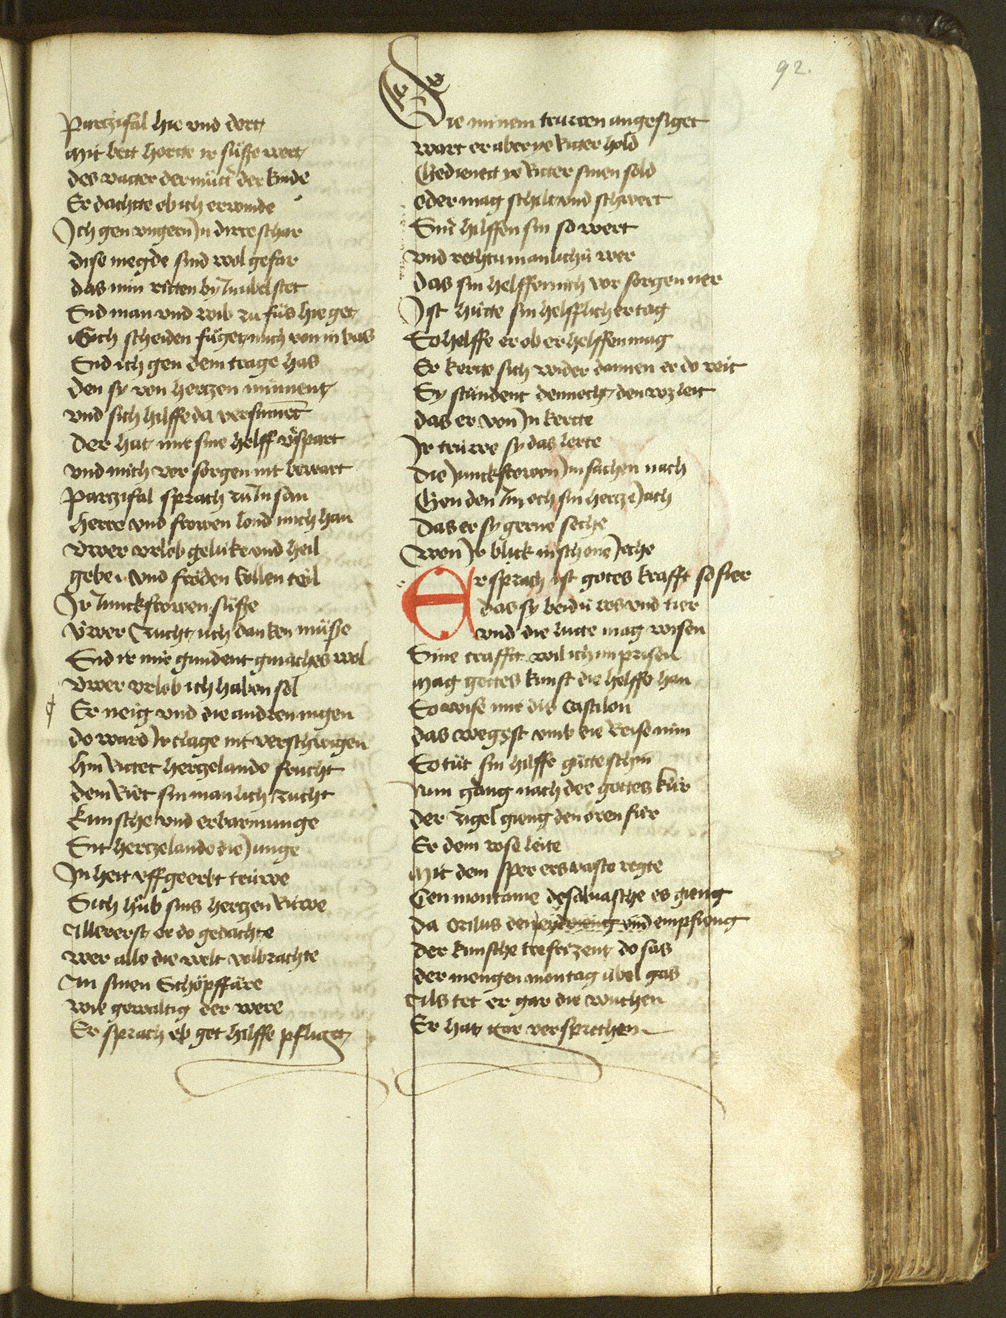 92.
Parczifal hie vnd dort
Mit bett hortte ir süsse wort
des vatter der mütt͛ der kinde
Er dachtte ob ich erwinde
Ich gen vngern Jn dirre schar
dise megde sind wol gefar
das min ritten by Jn vbel stet
Sid man vnd wib zu füs hie get
Sich scheiden füget mich von in bas
Sid ich gen dem trage has
den sy von hertzen minnent
vnd sich hilffe da versinnet
Der hat mir sine helff v͛spart
vnd mich vor sorgen nit bewart
Parczifal sprach zu Jn san
herre vnd frowen lond mich han
Vwer vrlob gelüke vnd heil
gebe i vnd fröden vollen teil
Jr Junckfrowen süsse
Vwer zucht üch danken müsse
Sid ir mir gundent gmaches wol
Vwer vrlob ich haben sol
Er neig vnd die andren nigen
do ward Jr clage nit verschwigen
hin rittet hertzelande frucht
dem riet sin manlich zucht
Künsche vnd erbarmunge
Sit hertzelande die Junge
Jn hett vff geerbt trüwe
Sich hüb sins hertzen rüwe
Allererst er do gedachte
wer alle die welt volbrachte
An sinen Schöpffäre
wie gewaltig der were
Er sprach ob got hilffe pfliget
Die minem truren angesiget
wart er aber ye ritter hold
Gedienett ye ritter sinen sold
oder mag schilt vnd schwert
Sin͛ hilffen sin so wert
vnd rechtü manlichü wer
das sin helffe mich vor sorgen ner
Ist hütte sin helfflicher tag
So helffe er ob er helffen mag
Er kerte sich wider dannen er do reit
Sy stündent dennocht den wz leit
das er von Jn kertte
Jr trüwe sy das lerte
Die Junckfrowen Jm sachen nach
Gen den Jm och sin hertze Jach
Das er sy gerne seche
Won Jr blick in schone Jeche
Er sprach ist gotes krafft so fier
das sy beidü ros vnd tier
vnd die lütte mag wisen
Sine crafft wil ich im prisen
Mag gottes kunst die helffe han
So wise mir dis castilon
das wegyst vmb die reise min
So tüt sin hilffe gütte schin
Nun gang nach der gottes kür
der zügel gieng den oren für
Er dem rose leite
Mit dem sper ers vaste regte
Gen montanie desaluasche es gieng
Da orilus den eyd empfieng
der künsche trefrezent do sas
der mengen montag übel gas
Als tet er gar die wuchen
Er hat gar versprochen